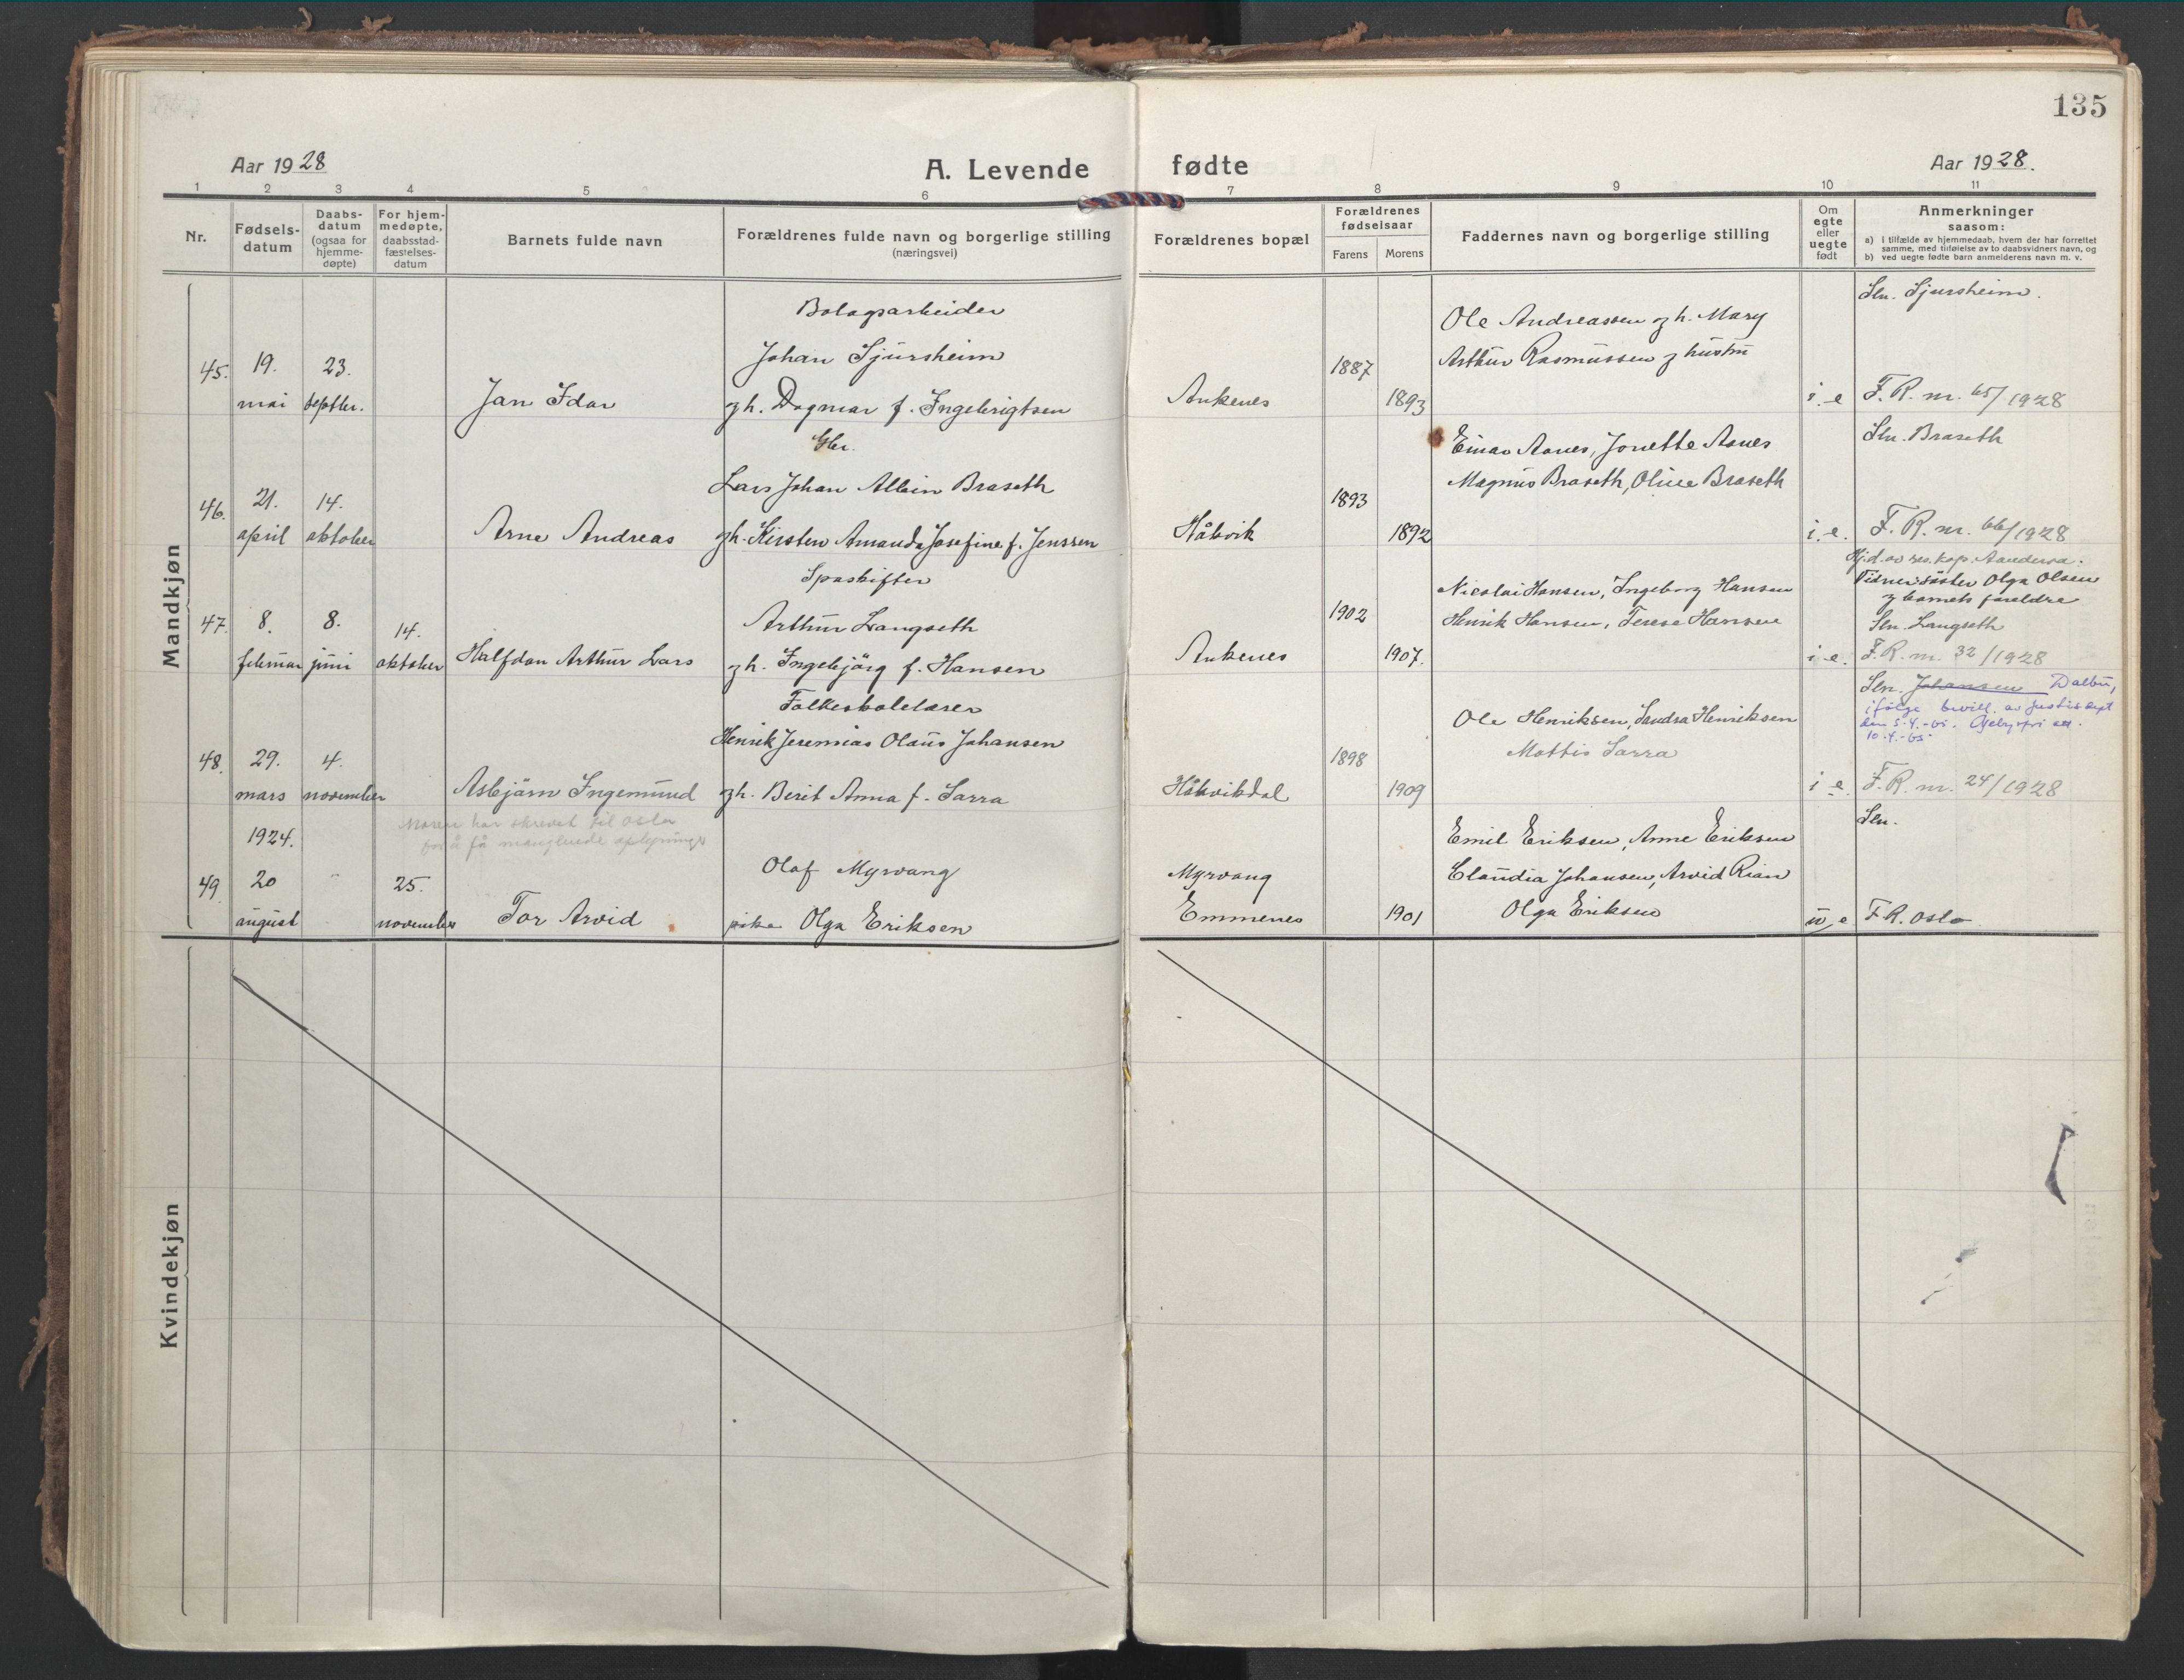 135
Aar 1928
A. Levende fødte
Aar 1928.
1 2 3 4 5 6 7 8 9 10 11
Nr.
Fødsels-
datum
Daabs-
datum
(ogsaa for
hjemme-
døpte)
For hjem-
medøpte,
daabsstad-
fæstelses-
datum
Barnets fulde navn
Forældrenes fulde navn og borgerlige stilling
(næringsvei)
Forældrenes bopæl
Forældrenes
fødselsaar
Farens
Morens
Faddernes navn og borgerlige stilling
Om
egte
eller
uegte
født
Anmerkninger
saasom:
a) i tilfælde av hjemmedaab, hvem der har forrettet
samme, med tilføielse av to daabsvidners navn, og
b) ved uegte fødte barn anmelderens navn m. v.
Mandkjøn
45.
19.
mai
23.
septbr.
Jan Idar
Bolagsarbeider
Johan Sjursheim
gh. Dagmar f. Ingebrigtsen
Ankenes
1887
1893
Ole Andreassen og h. Mary
Arthur Rasmussen og hustru
i. e
Sln. Sjursheim.
F. R. nr. 65/1928
46.
21.
april
14.
oktober
Arne Andreas
Gbr.
Lars Johan Albin Braseth
gh. Kirsten Amanda Josefine f. Jenssen
Håkvik
1893
1892
Einar Aanes, Jonette Aanes
Magnus Braseth, Oline Braseth
i. e.
Sln. Braseth
F. R. nr. 66/1928
47.
8.
februar
8.
juni
14.
oktober
Halfdan Arthur Lars
Sporskifter
Arthur Langseth
gh. Ingebjörg f. Hansen
Ankenes
1902
1907.
Nicolai Hansen, Ingeborg Hansen
Henrik Hansen, Terese Hansen
i e.
Hj.d. av res. kap. Aandersa.
søster Olga Olsen
og barnets foreldre
Sln. Langseth
F. R. nr. 32/1928
48.
29.
mars
4.
november
Asbjörn Ingemund
Folkeskolelærer
Henrik Jeremias Olaus Johansen
gh. Berit Anna f. Sarra
Håkvikdal
1898
1909
Ole Henriksen, Sandra Henriksen
Mattis Sarra
i e.
Sln. Johansen Dalbu,
ifölge bevill. av justisdept
den 5.4.-65. Gebyrfri att.
10.4.-65.
F. R. nr. 24/1928
Moren har skrevet til Oslo
for å få manglende oplysninger
49
1924.
20
august
25.
november
Tor Arvid
Olaf Myrvang
pike Olga Eriksen
Myrvang
Emmenes
1901
Emil Eriksen, Anne Eriksen
Claudia Johansen, Arvid Rian
Olga Eriksen
u. e
Sln.
F. R. Oslo
Kvindekjøn